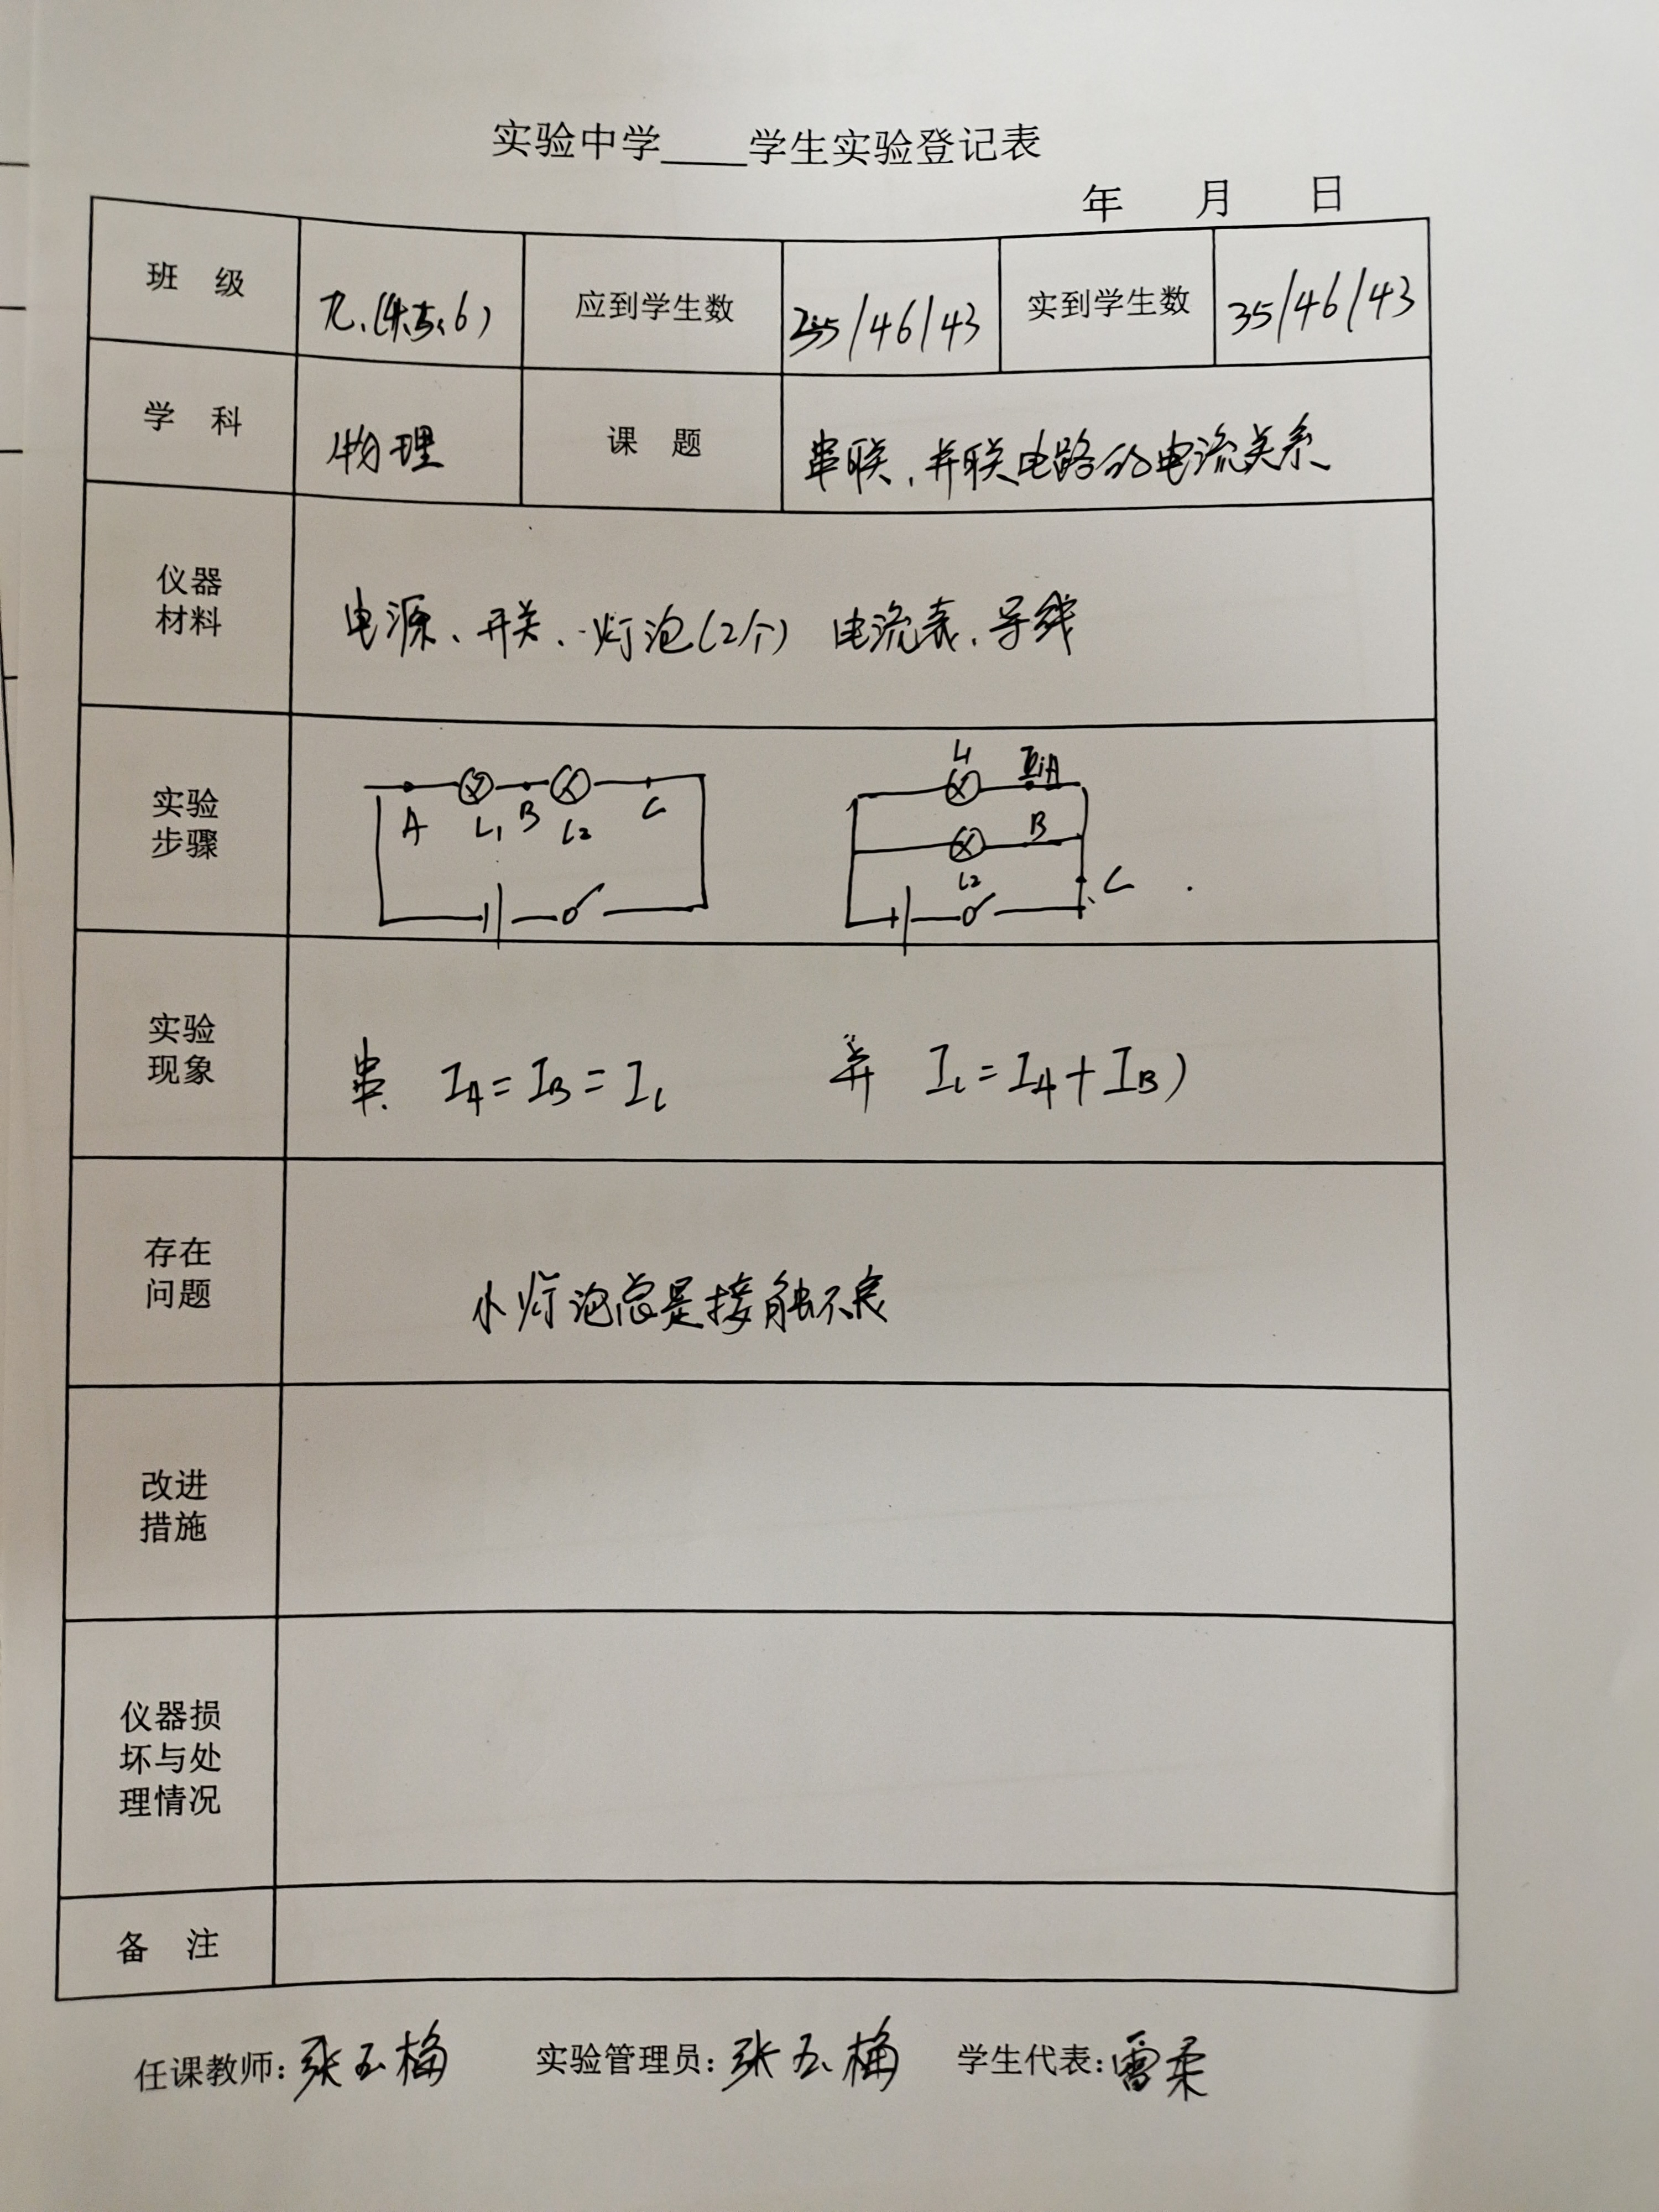 实验中学____学生实验登记表
年 月 日
班 级 九.(4.5.6) 应到学生数 35/46/43 实到学生数 35/46/43
学 科 物理 课 题 串联、并联电路的电流关系
仪器
材料
电源、开关、灯泡(2个) 电流表、导线
实验
步骤
A L₁ B L₂ C
L₁ A
B
L₂ C
实验
现象
串 I_A=I_B=I_C 并 I_C=I_A+I_B)
存在
问题
小灯泡总是接触不良
改进
措施
仪器损
坏与处
理情况
备 注
任课教师: 张玉梅 实验管理员: 张玉梅 学生代表: 雷柔